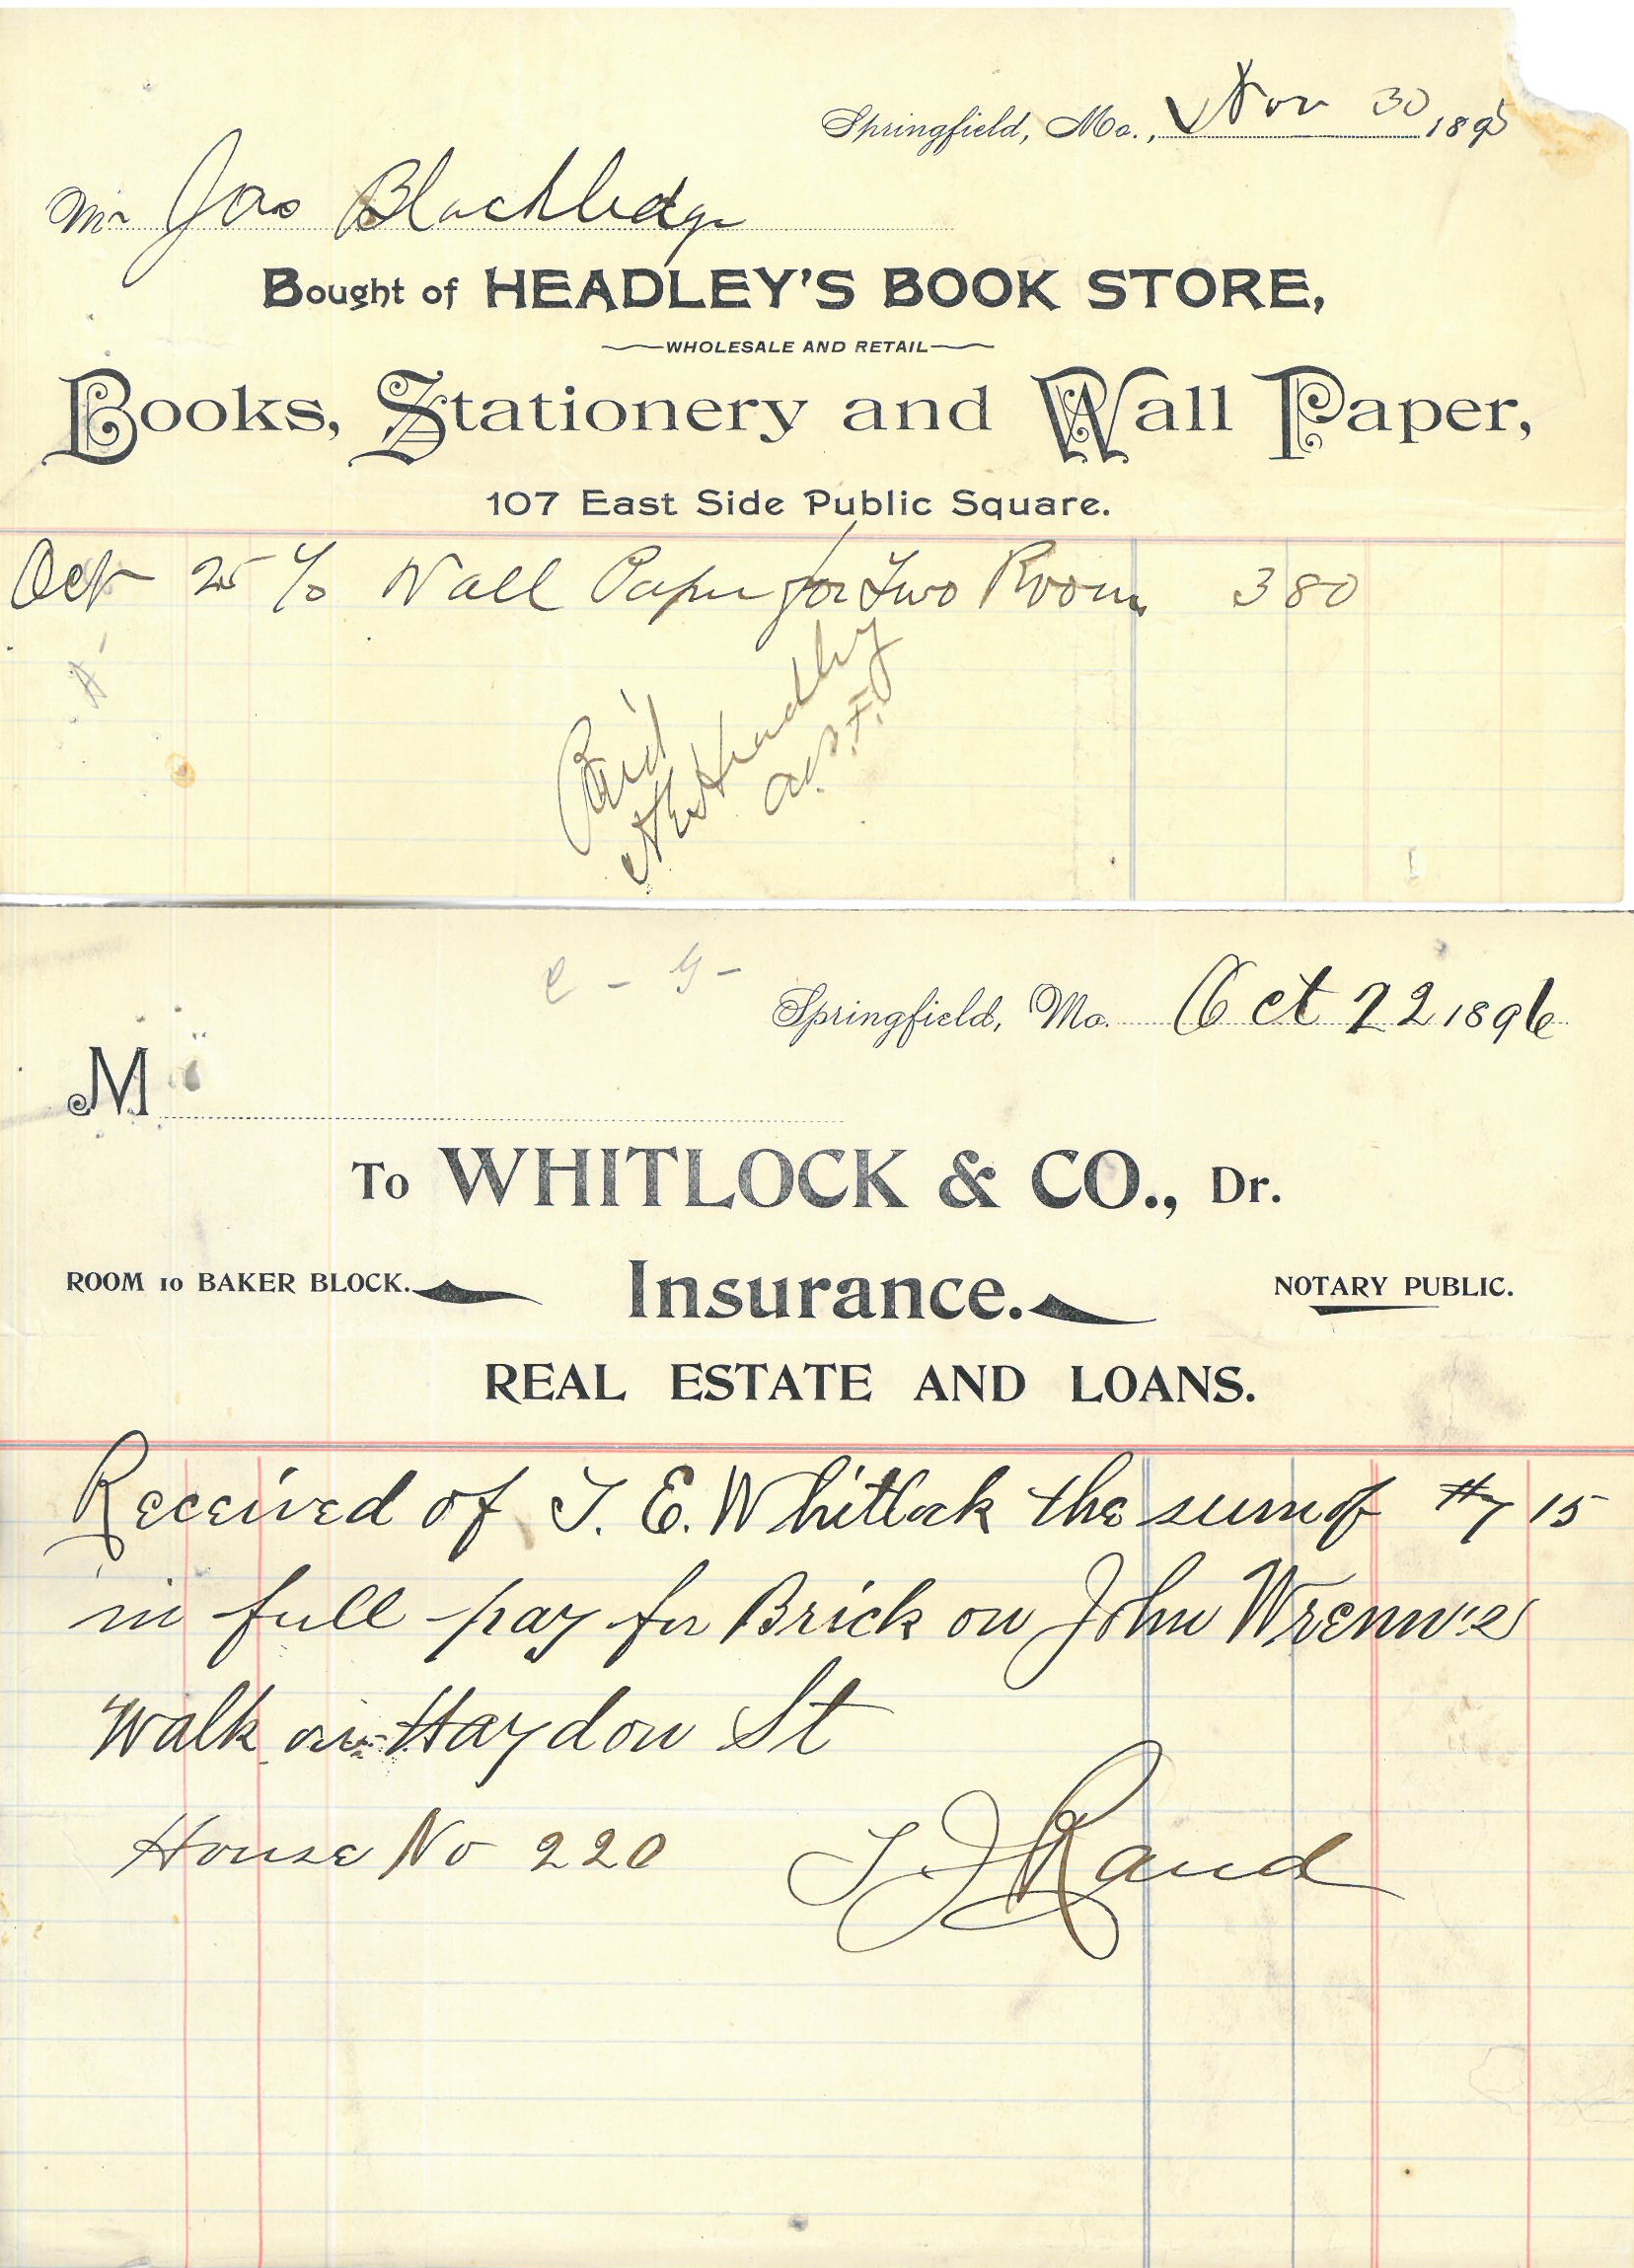 Springfield, Mo., Nov 30 1895
Mr Jas Blackledge
Bought of HEADLEY'S BOOK STORE,
WHOLESALE AND RETAIL
Books, Stationery and Wall Paper,
107 East Side Public Square.
Oct 25 To Wall Paper for Two Room 380
Pai'd
Headley
Springfield, Mo. Oct 22 1896
M
To WHITLOCK & CO., Dr.
ROOM 10 BAKER BLOCK. Insurance. NOTARY PUBLIC.
REAL ESTATE AND LOANS.
Received of T. E. Whitlock the sum of #7 15
in full pay for Brick on John Wrenn's
Walk on Haydon St
House No 220 T J Rand